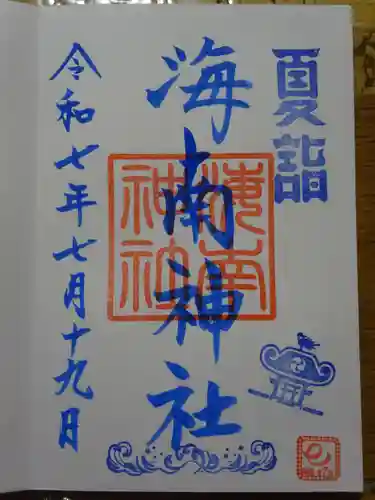 夏詣
海南神社
海南神社
令和七年七月十九日